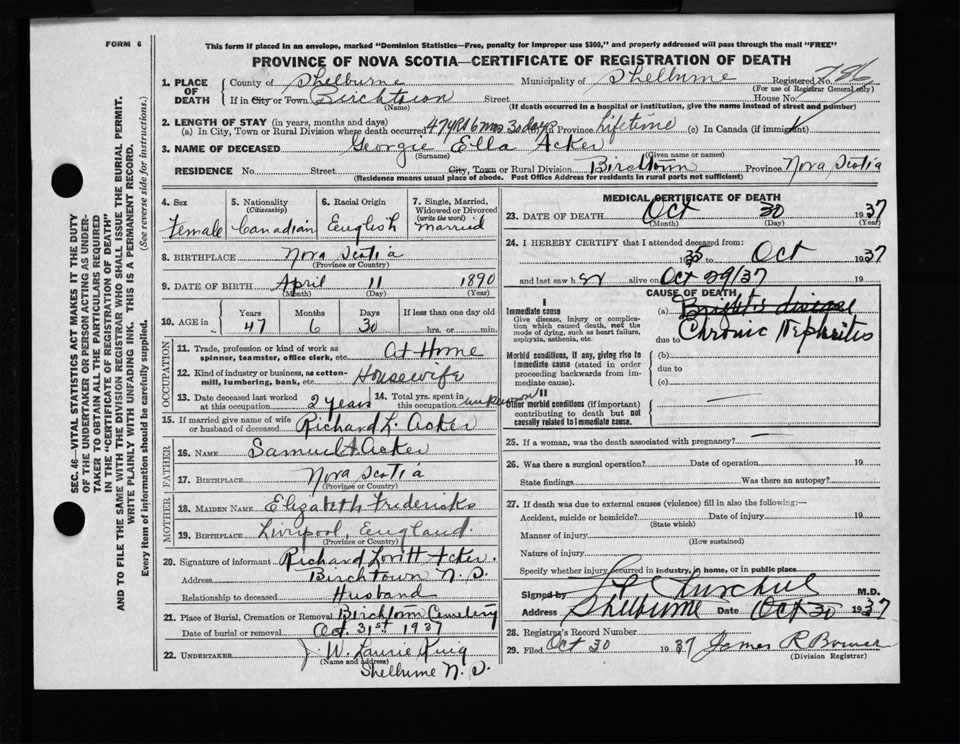 FORM 6
This form if placed in an envelope, marked "Dominion Statistics—Free, penalty for improper use $300," and properly addressed will pass through the mail "FREE"
PROVINCE OF NOVA SCOTIA—CERTIFICATE OF REGISTRATION OF DEATH
1. PLACE OF DEATH
County of Shelburne Municipality of Shelburne Registered No. 786
(For use of Registrar General only)
If in City or Town Birchtown Street House No.
(Name) (If death occurred in a hospital or institution, give the name instead of street and number)
2. LENGTH OF STAY (in years, months and days)
(a) In City, Town or Rural Division where death occurred 47 yrs 6 mos 30 days In Province Lifetime (c) In Canada (if immigrant)
3. NAME OF DECEASED Georgie Ella Acker
(Surname) (Given name or names)
RESIDENCE No. Street City, Town or Rural Division Birchtown Province Nova Scotia
(Residence means usual place of abode. Post Office Address for residents in rural parts not sufficient)
4. Sex
Female
5. Nationality
(Citizenship)
Canadian
6. Racial Origin
English
7. Single, Married, Widowed or Divorced
(write the word)
Married
8. BIRTHPLACE Nova Scotia
(Province or Country)
9. DATE OF BIRTH April 11 1890
(Month) (Day) (Year)
10. AGE in
Years Months Days If less than one day
47 6 30 hrs. or min.
OCCUPATION
11. Trade, profession or kind of work as spinner, teamster, office clerk, etc. At Home
12. Kind of industry or business, as cotton-mill, lumbering, bank, etc. Housewife
13. Date deceased last worked at this occupation 2 years
14. Total yrs. spent in this occupation unknown
15. If married give name of wife or husband of deceased Richard L. Acker
FATHER
16. NAME Samuel A Acker
17. BIRTHPLACE Nova Scotia
(Province or Country)
MOTHER
18. MAIDEN NAME Elizabeth Fredericks
19. BIRTHPLACE Liverpool, England.
(Province or Country)
20. Signature of informant Richard Lovitt Acker.
Address Birchtown N.S.
Relationship to deceased Husband
21. Place of Burial, Cremation or Removal Birchtown Cemetery
Date of burial or removal Oct. 31st 1937
22. UNDERTAKER J. W. Laurie King
(Name and address)
Shelburne N.S.
MEDICAL CERTIFICATE OF DEATH
23. DATE OF DEATH Oct 30 1937
(Month) (Day) (Year)
24. I HEREBY CERTIFY that I attended deceased from:
to Oct 1937
and last saw h er alive on Oct 29/37 19
CAUSE OF DEATH
I
Immediate cause
Give disease, injury or complication which caused death, not the mode of dying, such as heart failure, asphyxia, asthenia, etc.
(a) Bright's disease
due to Chronic Nephritis
Morbid conditions, if any, giving rise to immediate cause (stated in order proceeding backwards from immediate cause).
(b)
due to
(c)
II
Other morbid conditions (if important) contributing to death but not causally related to immediate cause.
25. If a woman, was the death associated with pregnancy?
26. Was there a surgical operation? Date of operation. 19
State findings Was there an autopsy?
27. If death was due to external causes (violence) fill in also the following:—
Accident, suicide or homicide? Date of injury 19
(State which)
Manner of injury
(How sustained)
Nature of injury
Specify whether injury occurred in industry, in home, or in public place
Signed by M.D.
Address Shelburne Date Oct 30 1937
28. Registrar's Record Number
29. Filed Oct 30 1937 James R Bower
(Division Registrar)
SEC. 46—VITAL STATISTICS ACT MAKES IT THE DUTY
OF THE UNDERTAKER OR PERSON ACTING AS UNDERTAKER TO OBTAIN ALL THE PARTICULARS REQUIRED
IN THE "CERTIFICATE OF REGISTRATION OF DEATH"
AND TO FILE THE SAME WITH THE DIVISION REGISTRAR WHO SHALL ISSUE THE BURIAL PERMIT.
WRITE PLAINLY WITH UNFADING INK. THIS IS A PERMANENT RECORD.
Every item of information should be carefully supplied. (See reverse side for instructions.)